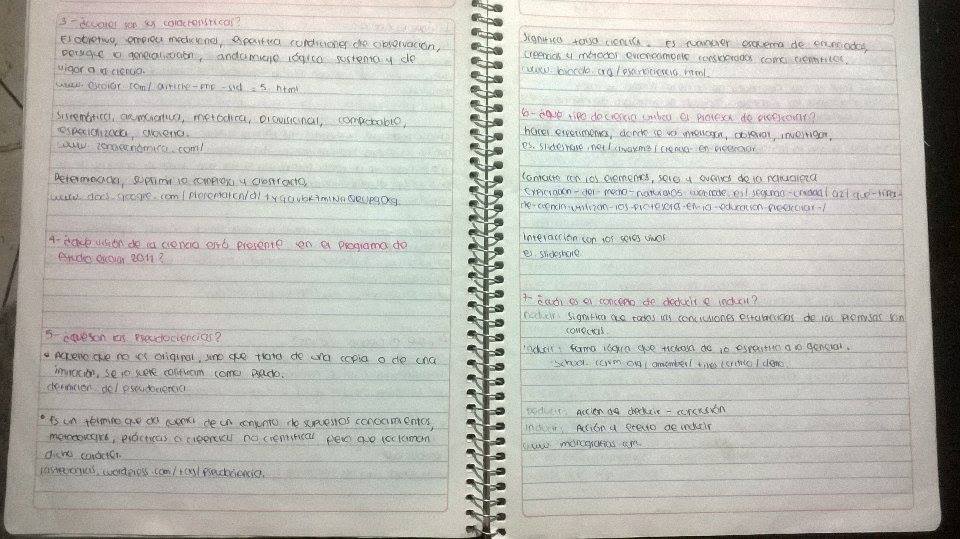 3- ¿cuáles son sus características?
Es objetivo, emplea mediciones, especifica condiciones de observación,
persigue la generalización, andamiaje lógico sustenta y de
vigor a la ciencia.
www. escolar. com/ article-php-sid = 5. html
Sistemática, acumulativa, metódica, provisional, comprobable,
especializada, abierta.
www. zonaeconomica. com/
Determinada, suprimir lo complejo y abstracto
www. docs. google. com/
4- ¿que visión de la ciencia está presente en el programa de
estudio escolar 2011?
5- ¿que son las pseudociencias?
• Aquello que no es original, sino que trata de una copia o de una
imitación, se lo suele calificar como pseudo.
definicion. de/ pseudociencia
• Es un término que da cuenta de un conjunto de supuestos conocimientos,
metodologías, prácticas o creencias no científicas pero que reclaman
dicho carácter.
wordpress. com/ tag/ pseudociencia.
Significa falsa ciencia. Es cualquier esquema de enunciados,
creencias y métodos erróneamente considerados como científicos.
6- ¿que tipo de ciencia utiliza el profesor de preescolar?
hacer experimentos, donde se va interrogar, observar, investigar,
es. slideshare. net/ ciencia-en-preescolar
Contacto con los elementos, seres y eventos de la naturaleza
Exploracion-del-medio-natural
de-ciencia-utilizan-los-profesores-en-la-educacion-preescolar-/
Interacción con los seres vivos
es. slideshare
7- ¿cuál es el concepto de deducir e inducir?
Deducir: Significa que todas las conclusiones establecidas de las premisas son
correctas.
Inducir: forma lógica que trata de lo específico a lo general.
Deducir: Acción de deducir - conclusión
Inducir: Acción y efecto de inducir
www. monografias. com.